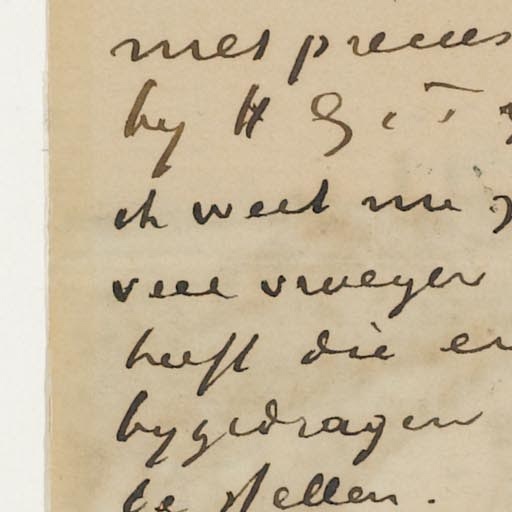 met precies
by H G. T
ik weet nu
veel vroeger
heeft die er
bygedragen
te stellen.